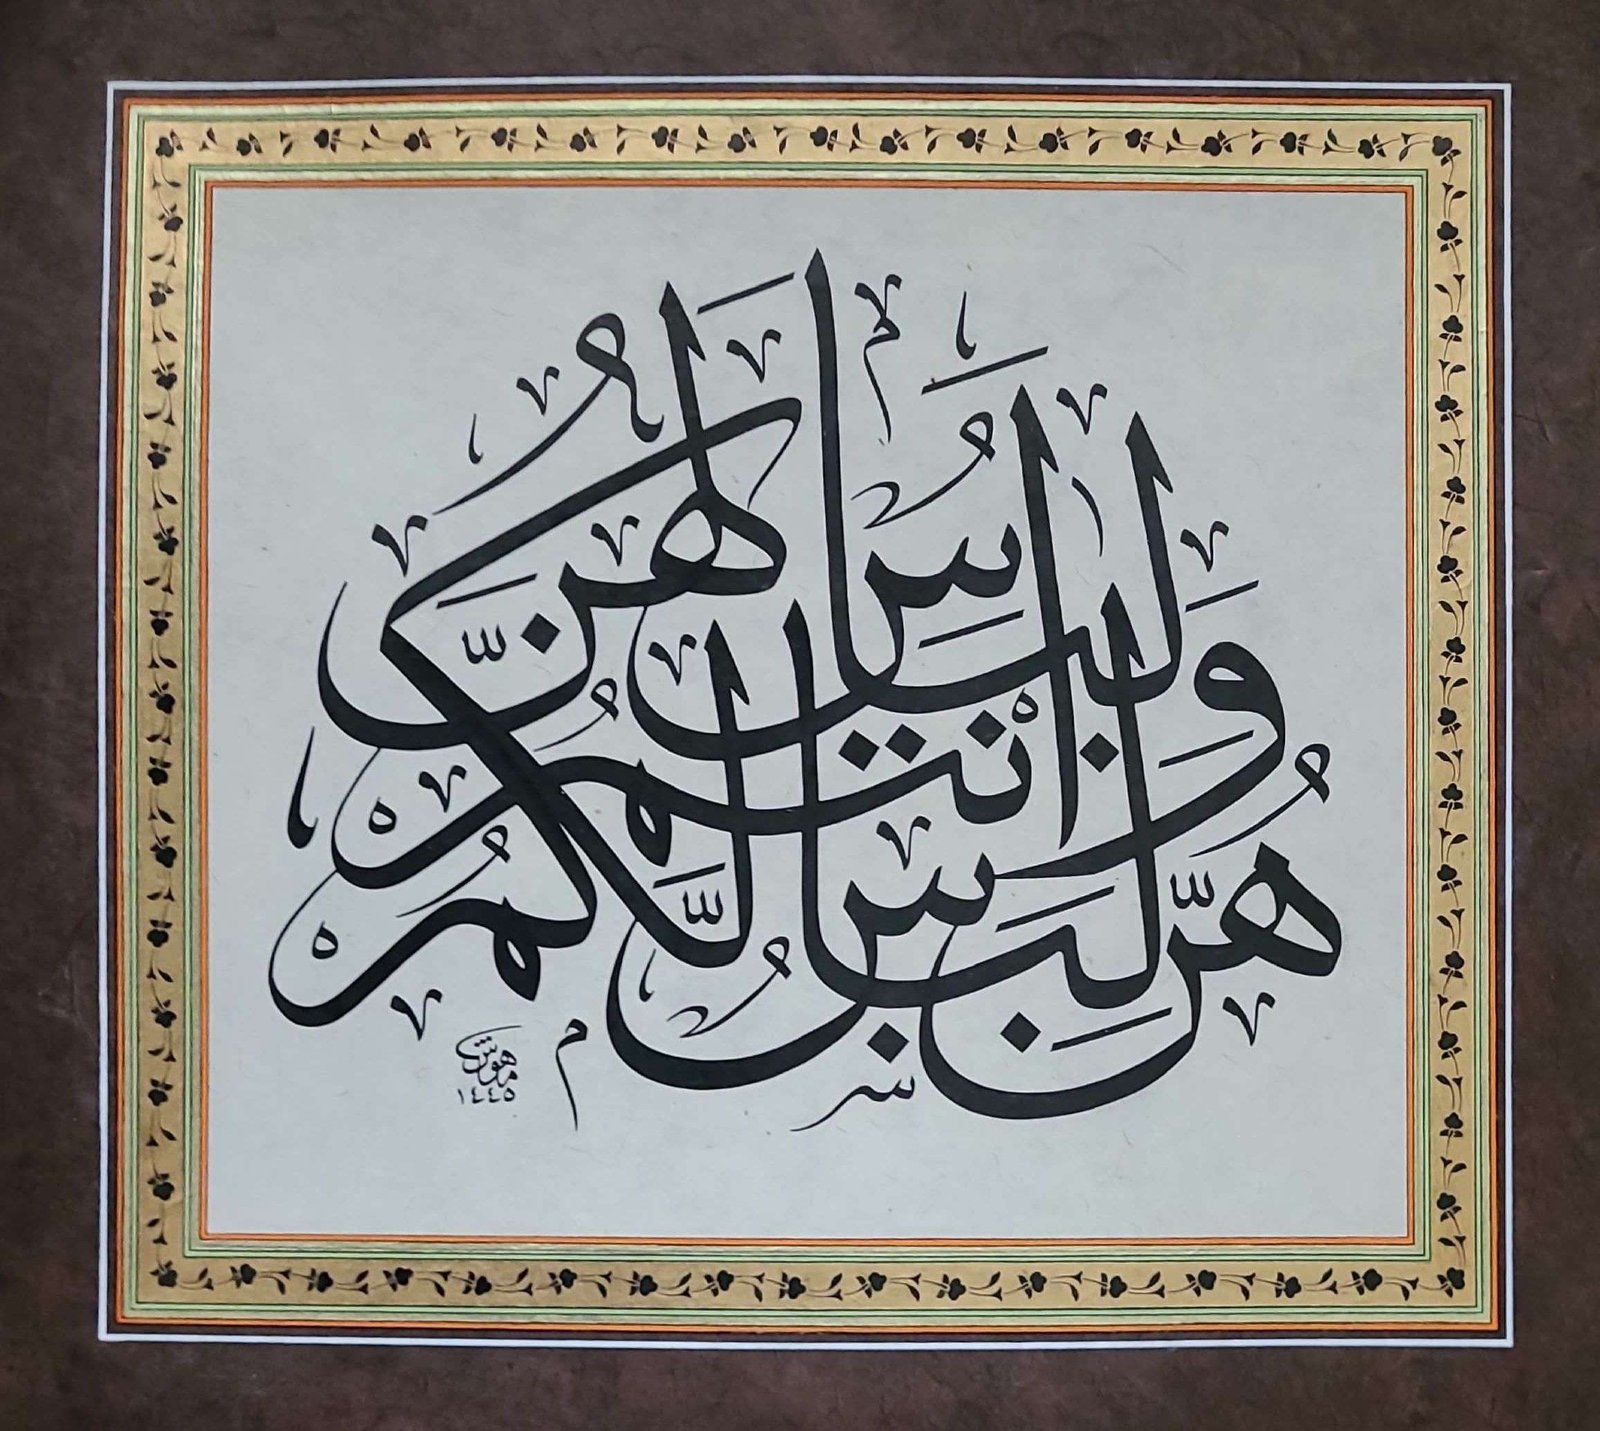 هُنَّ لِبَاسٌ لَّكُمْ وَأَنْتُمْ لِبَاسٌ لَهُنَّ
مهوش
١٤٤٥